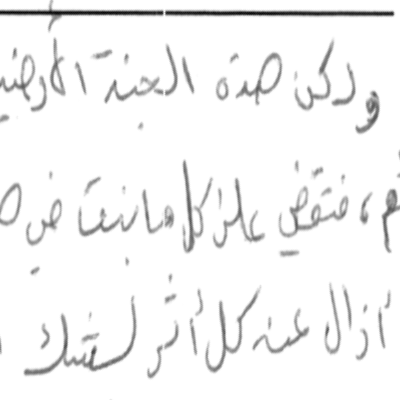 ولكن هذه الجنة الأرضية
، فتقضي على كل ما نبت في
أزال عنه كل أثر لسفك